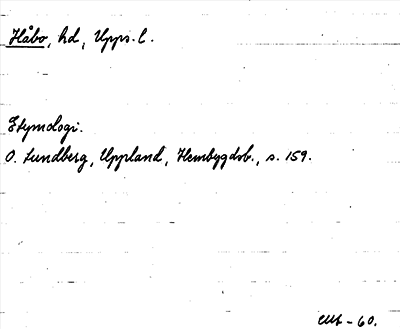 Håbo, hd, Upps. l.
Etymologi.
O. Lundberg, Uppland, Hembygdsb., s. 159.
-60.